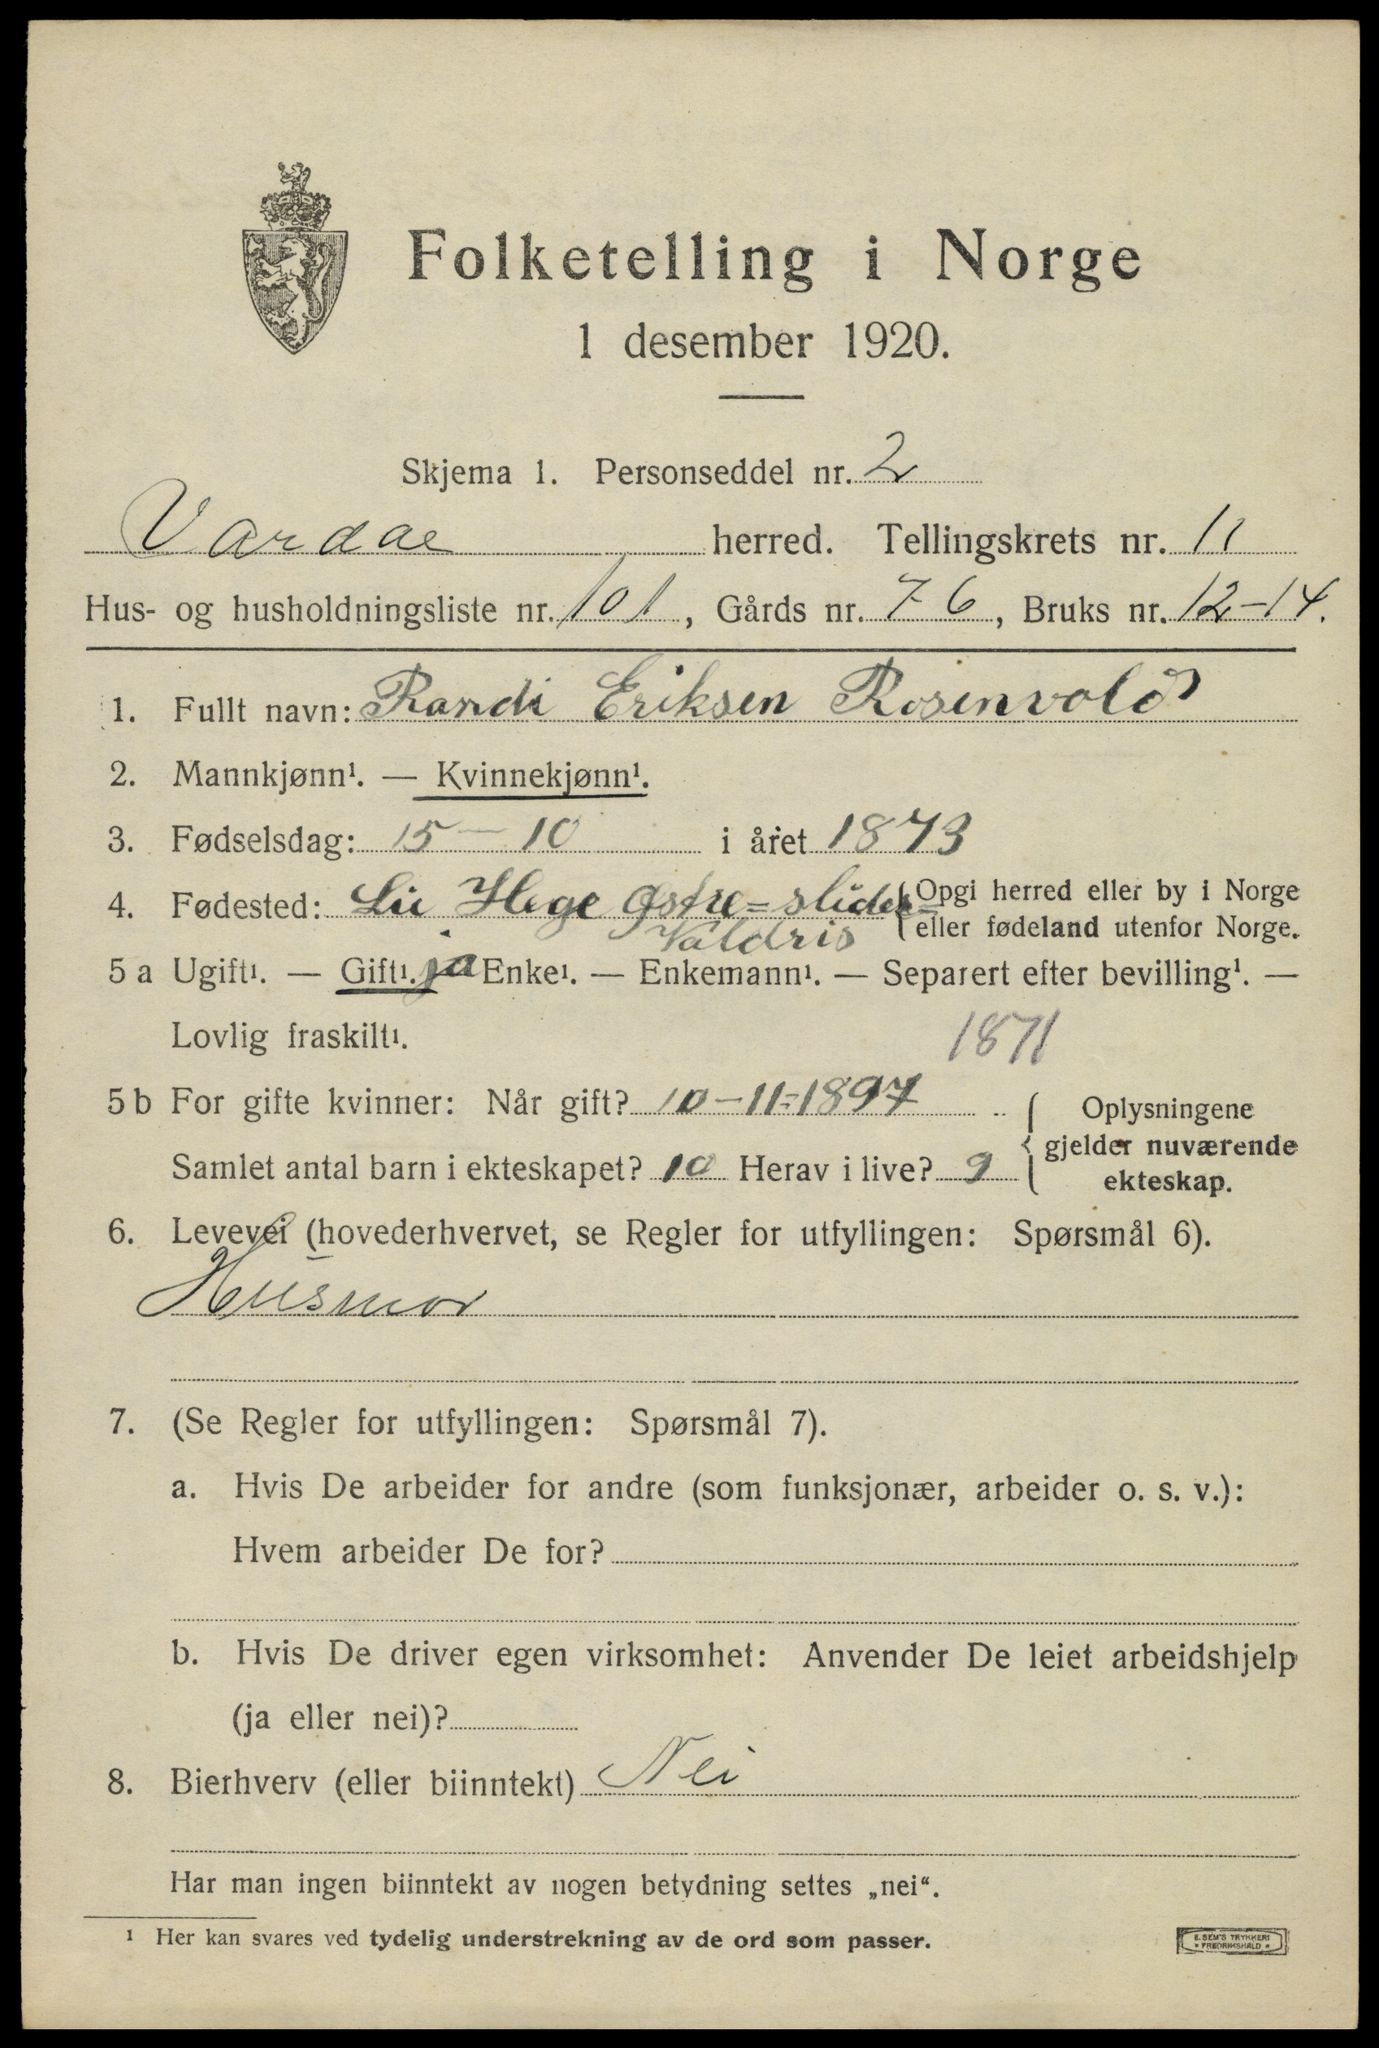 Folketelling i Norge
1 desember 1920.
Skjema 1. Personseddel nr. 2
Vardal herred. Tellingskrets nr. 11
Hus- og husholdningsliste nr. 101, Gårds nr. 76, Bruks nr. 12-14.
1. Fullt navn: Randi Eriksen Rosenvold
2. Mannkjønn¹. — Kvinnekjønn¹.
3. Fødselsdag: 15 — 10 i året 1873
4. Fødested: Lie Hege Østre=slidre= Opgi herred eller by i Norge
Valdris eller fødeland utenfor Norge.
5 a Ugift¹. — Gift¹. ja Enke¹. — Enkemann¹. — Separert efter bevilling¹. —
Lovlig fraskilt¹. 1871
5 b For gifte kvinner: Når gift? 10-11=1897 Oplysningene
gjelder nuværende
Samlet antal barn i ekteskapet? 10 Herav i live? 9 ekteskap.
6. Levevei (hovederhvervet, se Regler for utfyllingen: Spørsmål 6).
Husmor
7. (Se Regler for utfyllingen: Spørsmål 7).
a. Hvis De arbeider for andre (som funksjonær, arbeider o. s. v.):
Hvem arbeider De for?
b. Hvis De driver egen virksomhet: Anvender De leiet arbeidshjelp
(ja eller nei)?
8. Bierhverv (eller biinntekt) Nei
Har man ingen biinntekt av nogen betydning settes „nei“.
¹ Her kan svares ved tydelig understrekning av de ord som passer.
E. SEM'S TRYKKERI
* FREDRIKSHALD *